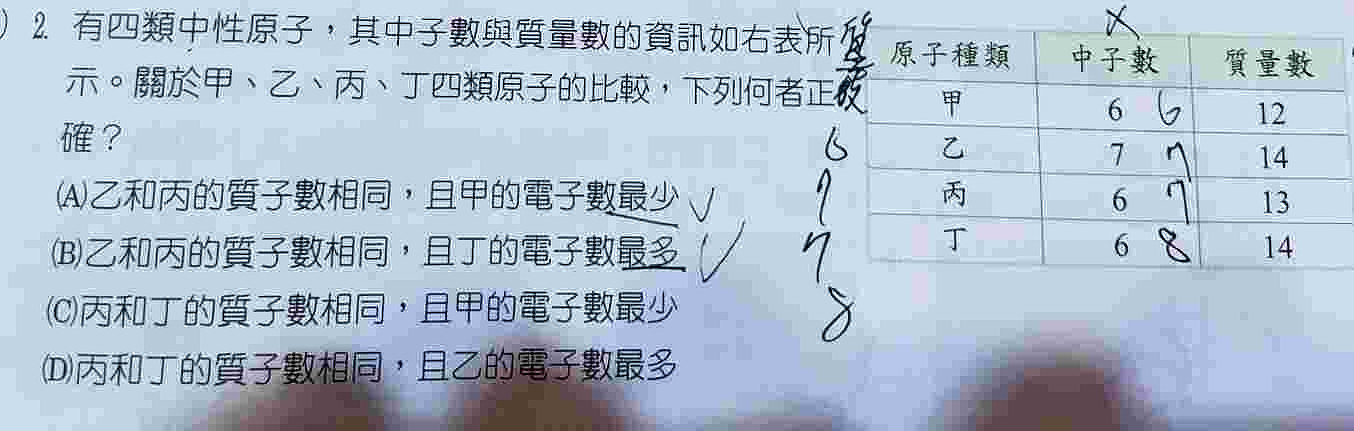 ) 2. 有四類中性原子，其中子數與質量數的資訊如右表所
示。關於甲、乙、丙、丁四類原子的比較，下列何者正
確？
(A)乙和丙的質子數相同，且甲的電子數最少 ✓
(B)乙和丙的質子數相同，且丁的電子數最多 ✓
(C)丙和丁的質子數相同，且甲的電子數最少
(D)丙和丁的質子數相同，且乙的電子數最多
質
數
6
7
7
8
X
原子種類 中子數 質量數
甲 6 6 12
乙 7 7 14
丙 6 7 13
丁 6 8 14